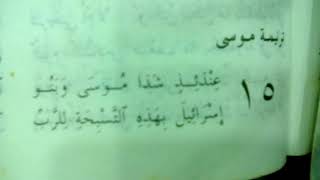 ترنيمة موسى
١٥ عِنْدَئِذٍ شَدَا مُوسَى وَبَنُو
إِسْرَائِيلَ بِهَذِهِ التَّسْبِيحَةِ لِلرَّبِّ